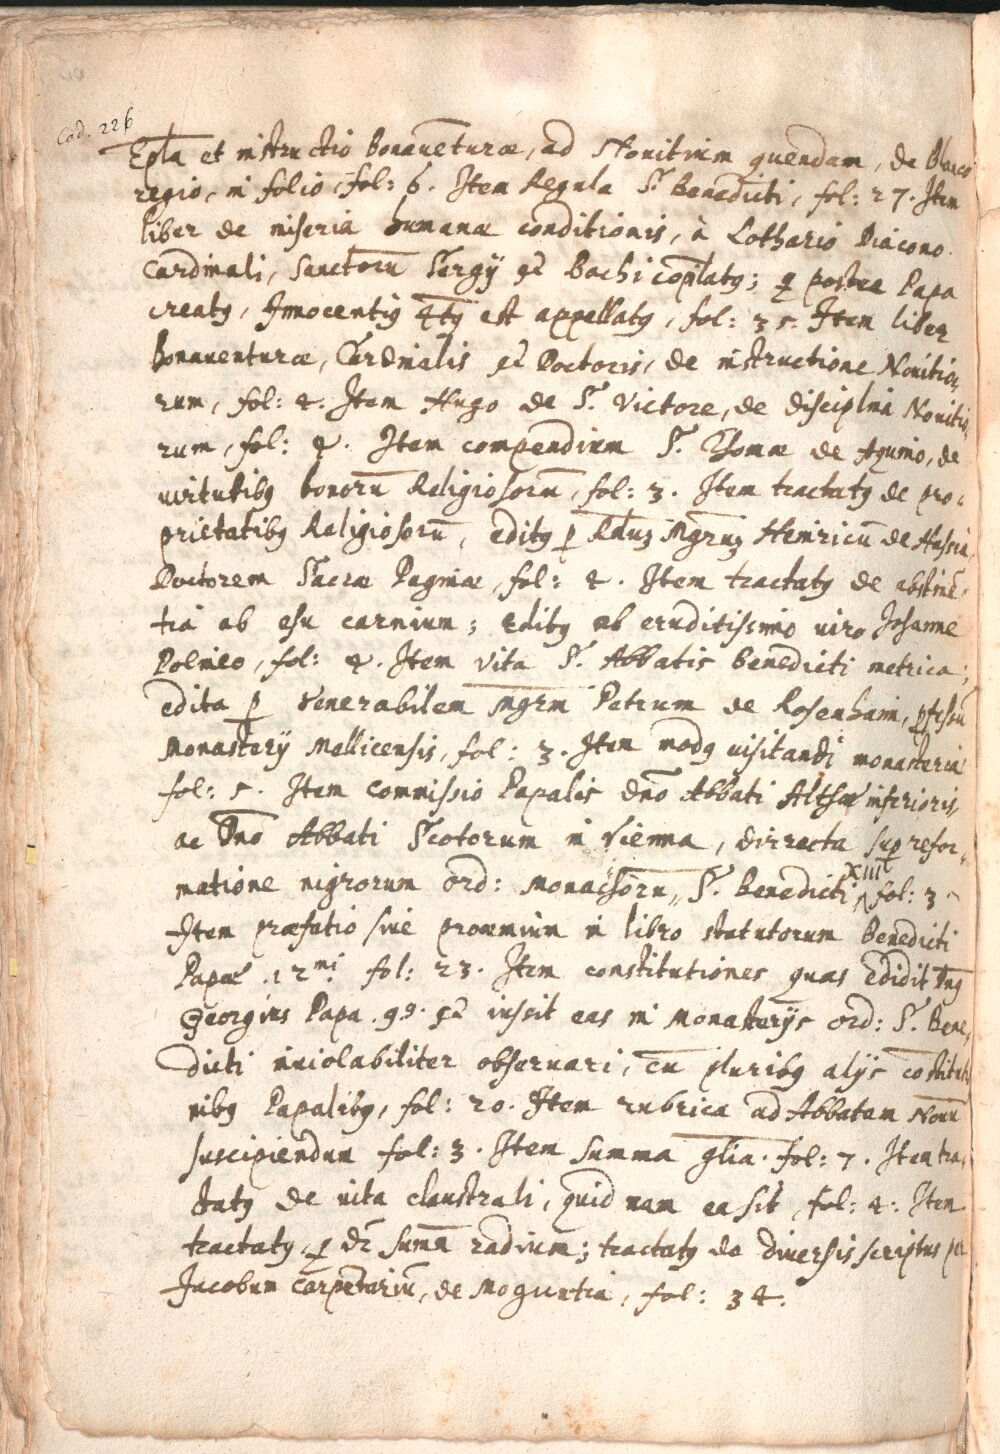 Cod. 226
Epla et instructio Bonauenturæ, ad Nouitium quendam, de Blanco
regio, in folio, fol: 6. Item Regula S. Benedicti, fol: 27. Item
liber de miseria humanæ conditionis, à Lothario Diacono
Cardinali, Sanctorũ Sergÿ et Bachi coplatꝰ; q postea Papa
creatꝰ, Innocentiꝰ 4tꝰ est appellatꝰ, fol: 35. Item liber
Bonauenturæ, Cardinalis et Doctoris, de instructione Nouitio,
rum, fol: 4. Item Hugo de S. Victore, de disciplina Nouitio,
rum, fol: 4. Item compendium S. Thomæ de Aquino, de
uirtutibꝰ bonorũ Religiosorũ, fol: 3. Item tractatꝰ de pro-
prietatibꝰ Religiosorũ, editꝰ ꝑ Rduꝫ Mgruꝫ Heinricũ de Hassia,
Doctorem Sacræ Paginæ, fol: 4. Item tractatꝰ de abstinẽ-
tia ab esu carnium; editꝰ ab eruditissimo uiro Johanne
Polneo, fol: 4. Item Vita S. Abbatis Benedicti metrica;
edita ꝑ Venerabilem Mgrm Petrum de Rosenhaim,
Monasterÿ Mellicensis, fol: 3. Item modꝰ uisitandi monasteria
fol: 5. Item Commissio Papalis dño Abbati Althæ inferioris,
ac Dño Abbati Scotorum in Vienna, dirrecta sup refor-
matione nigrorum ord: Monachorũ, S. Benedicti, XIII fol: 3
Item præfatio siue proæmium in libro statutorum Benedicti
Papæ .12mi. fol: 23. Item constitutiones quas edidit Dnꝰ
Georgius Papa .99. et iussit eas in Monasterÿs ord: S. Bene,
dicti inuiolabiliter obseruari, cũ pluribꝰ alÿs cõstitut
nibꝰ Papalibꝰ, fol: 20. Item rubrica ad Abbatem Nouũ
suscipiendum fol: 3. Item Summa glia. fol: 7. Item tra,
tatꝰ de uita claustrali, quid nam ea sit, fol: 4. Item
tractatꝰ, q dr̃ Sumã radium; tractatꝰ de diuersis scriptus per
Jacobum Carpẽtariũ, de Moguntia, fol: 34.